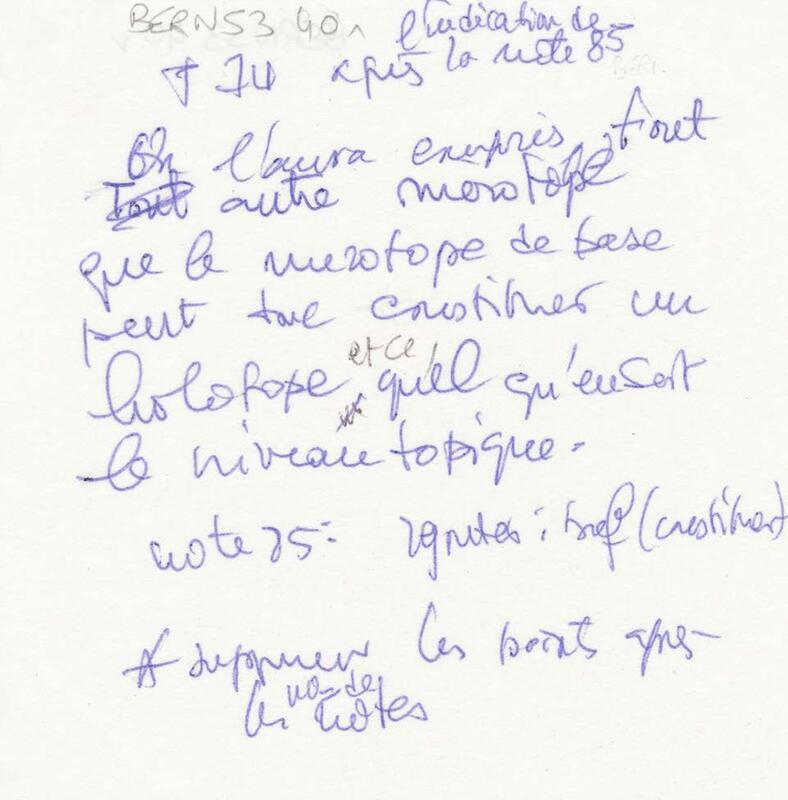 BERNS3 40
l'indication de
p 74 après la note 85
On l'aura compris, tout
Tout autre mérotope
que le mérotope de base
peut donc constituer un
holotope, et ce quel qu'en soit
le niveau topique.
note 85: (constituer)
supprimer les points après
les nos de
notes